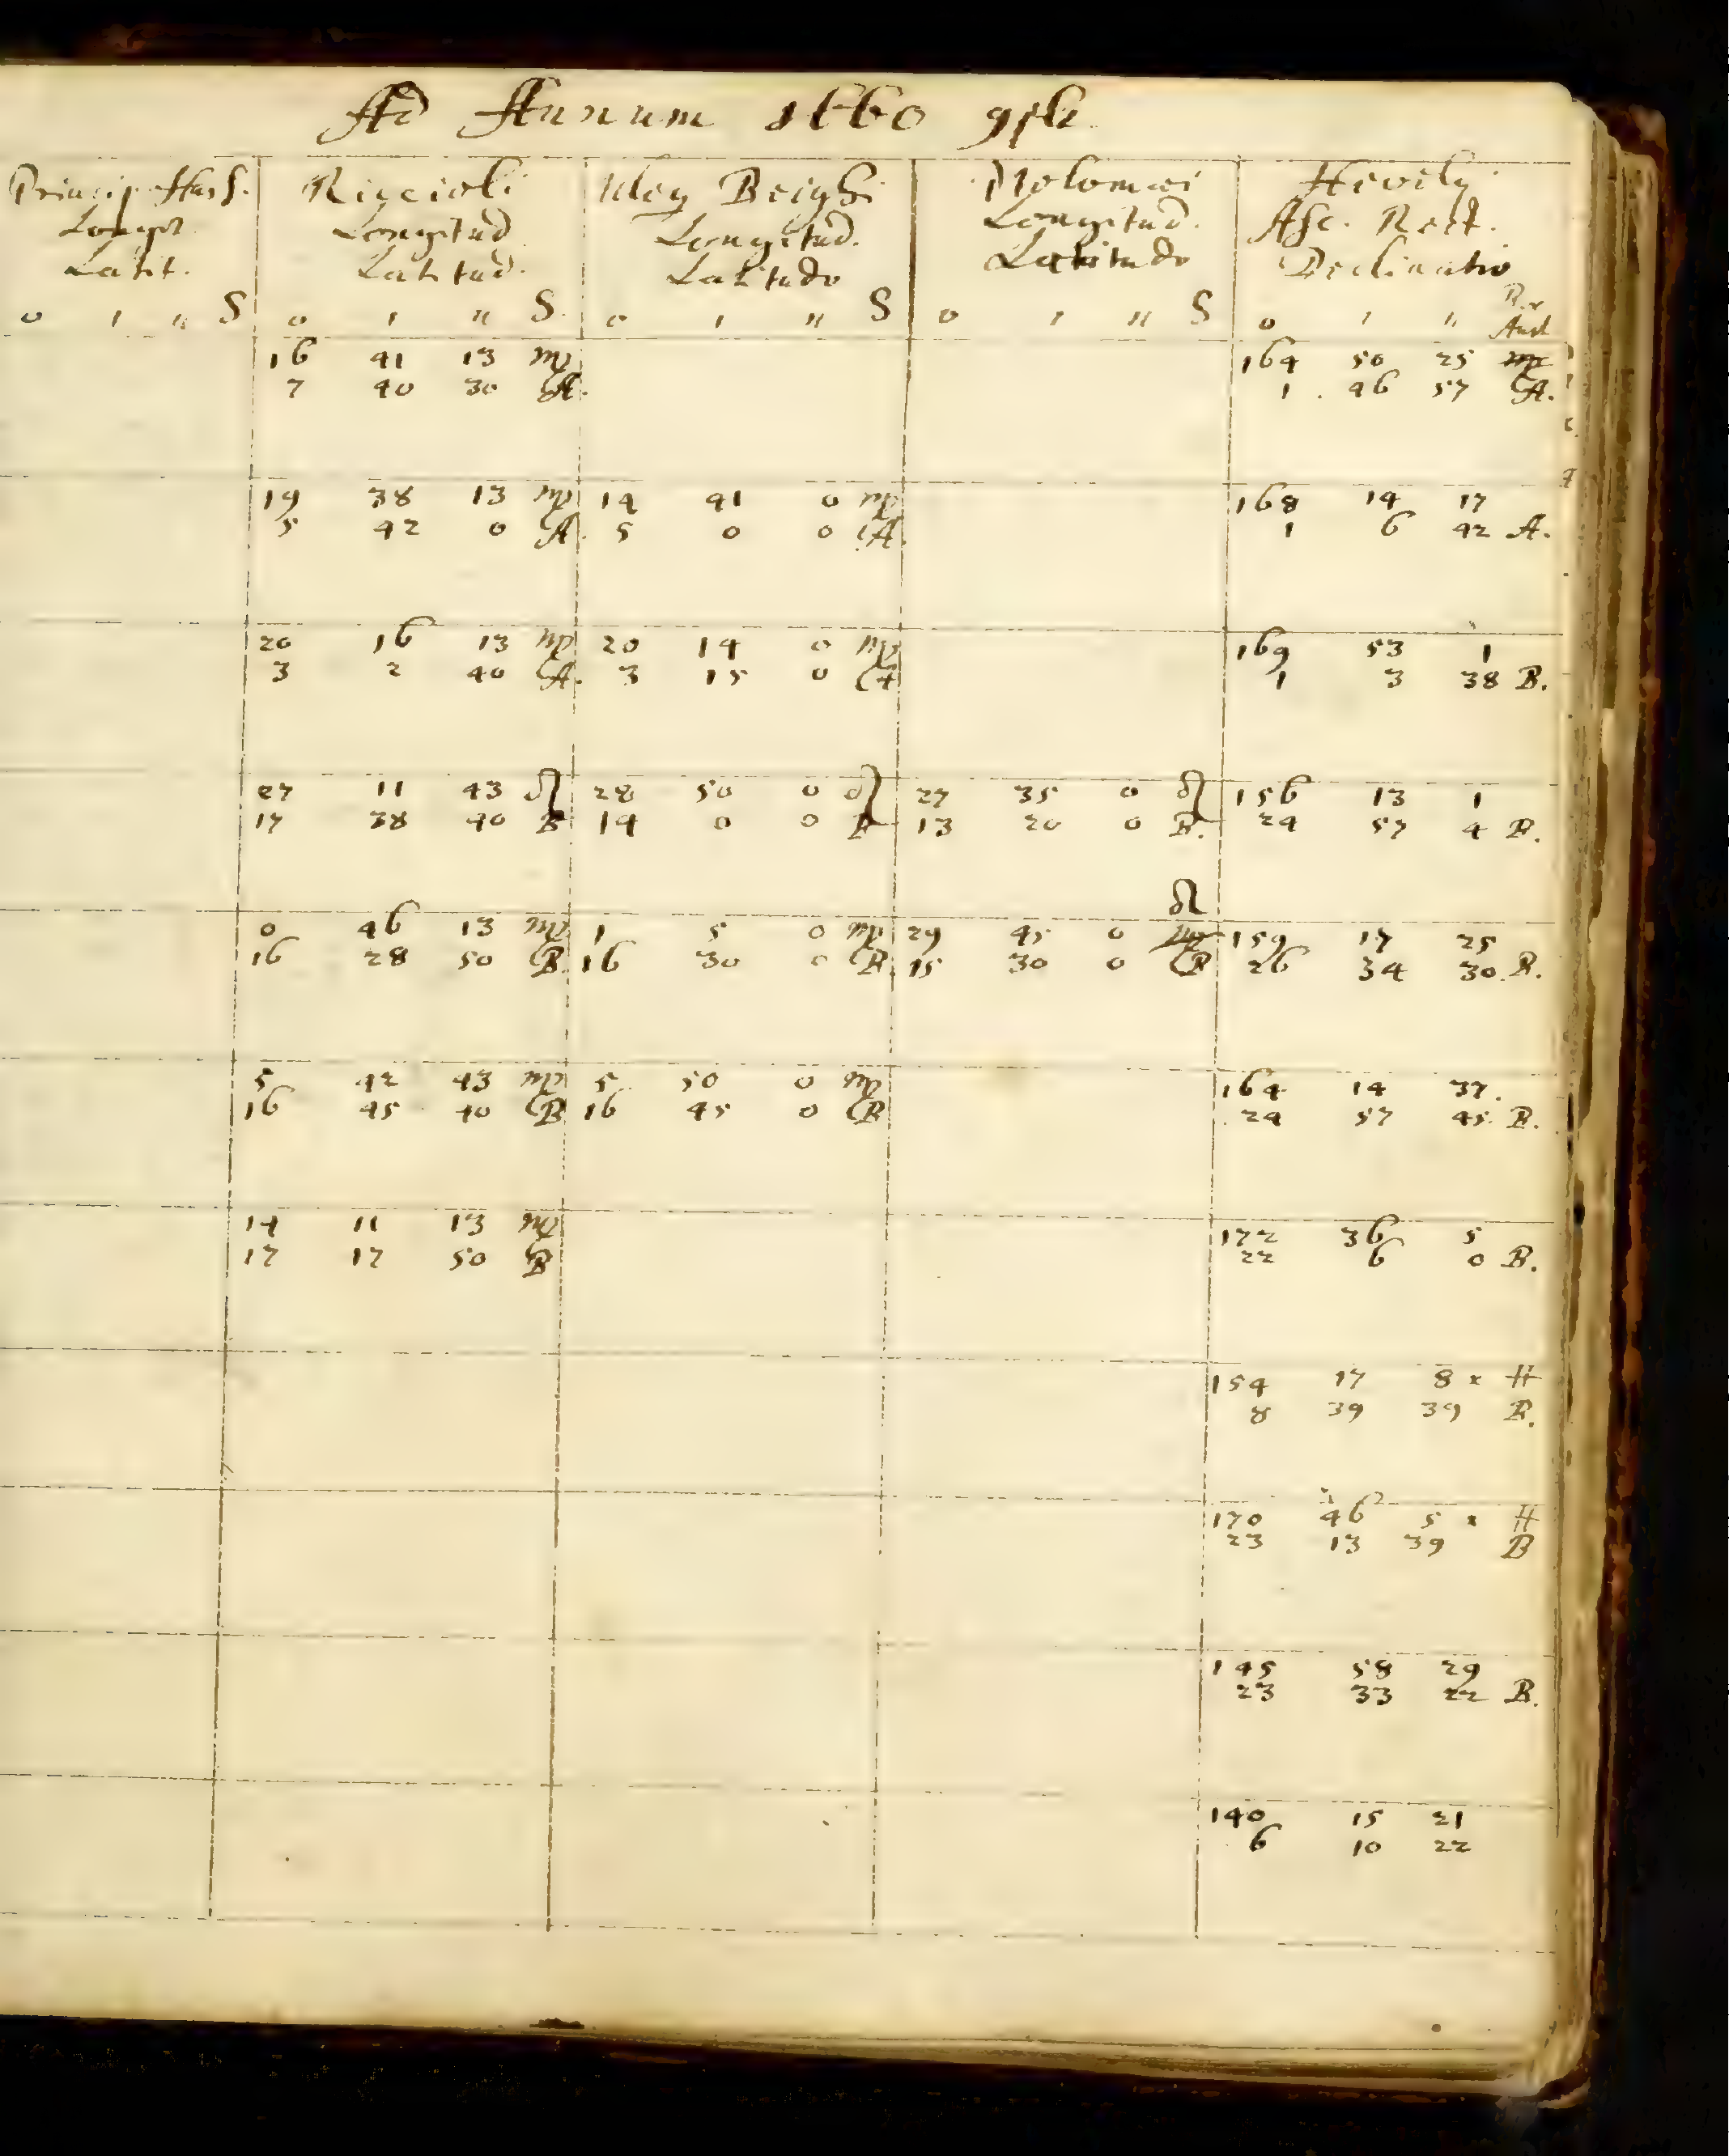 Ad Annum 1660 
Princip. Hass. Riccioli Uleg Beighi Ptolomæi Hevelij
Longit. Longitud Longitud. Longitud. Asc. Rect.
Latit. Latitud. Latitudo Latitudo Declinatio
Bor
° ' " S ° ' " S. ° ' " S ° ' " S ° ' " Aust
16 41 13 ♍ 164 50 25
7 40 30 A. 1 46 57 A.
19 38 13 ♍ 14 41 0 ♍ 168 14 17
5 42 0 A. 5 0 0 A. 1 6 42 A.
20 16 13 ♍ 20 14 0 ♍ 169 53 1
3 2 40 A. 3 15 0 A 1 3 38 B.
27 11 43 ♌ 28 50 0 ♌ 27 35 0 ♌ 156 13 1
17 38 40 B 14 0 0 B 13 20 0 B. 24 57 4 B.
♌
0 46 13 ♍ 1 5 0 ♍ 29 45 0 ♍ 159 17 25
16 28 50 B. 16 30 0 B. 15 30 0 B 26 34 30. B.
5 42 43 ♍ 5 50 0 ♍ 164 14 37.
16 45 40 B 16 45 0 B 24 57 45. B.
14 11 13 ♍ 172 36 5
17 17 50 B 22 6 0 B.
154 17 8 × H
8 39 39 B.
170 46 5 × H
23 13 39 B
145 58 29
23 33 22 B.
140 15 21
6 10 22